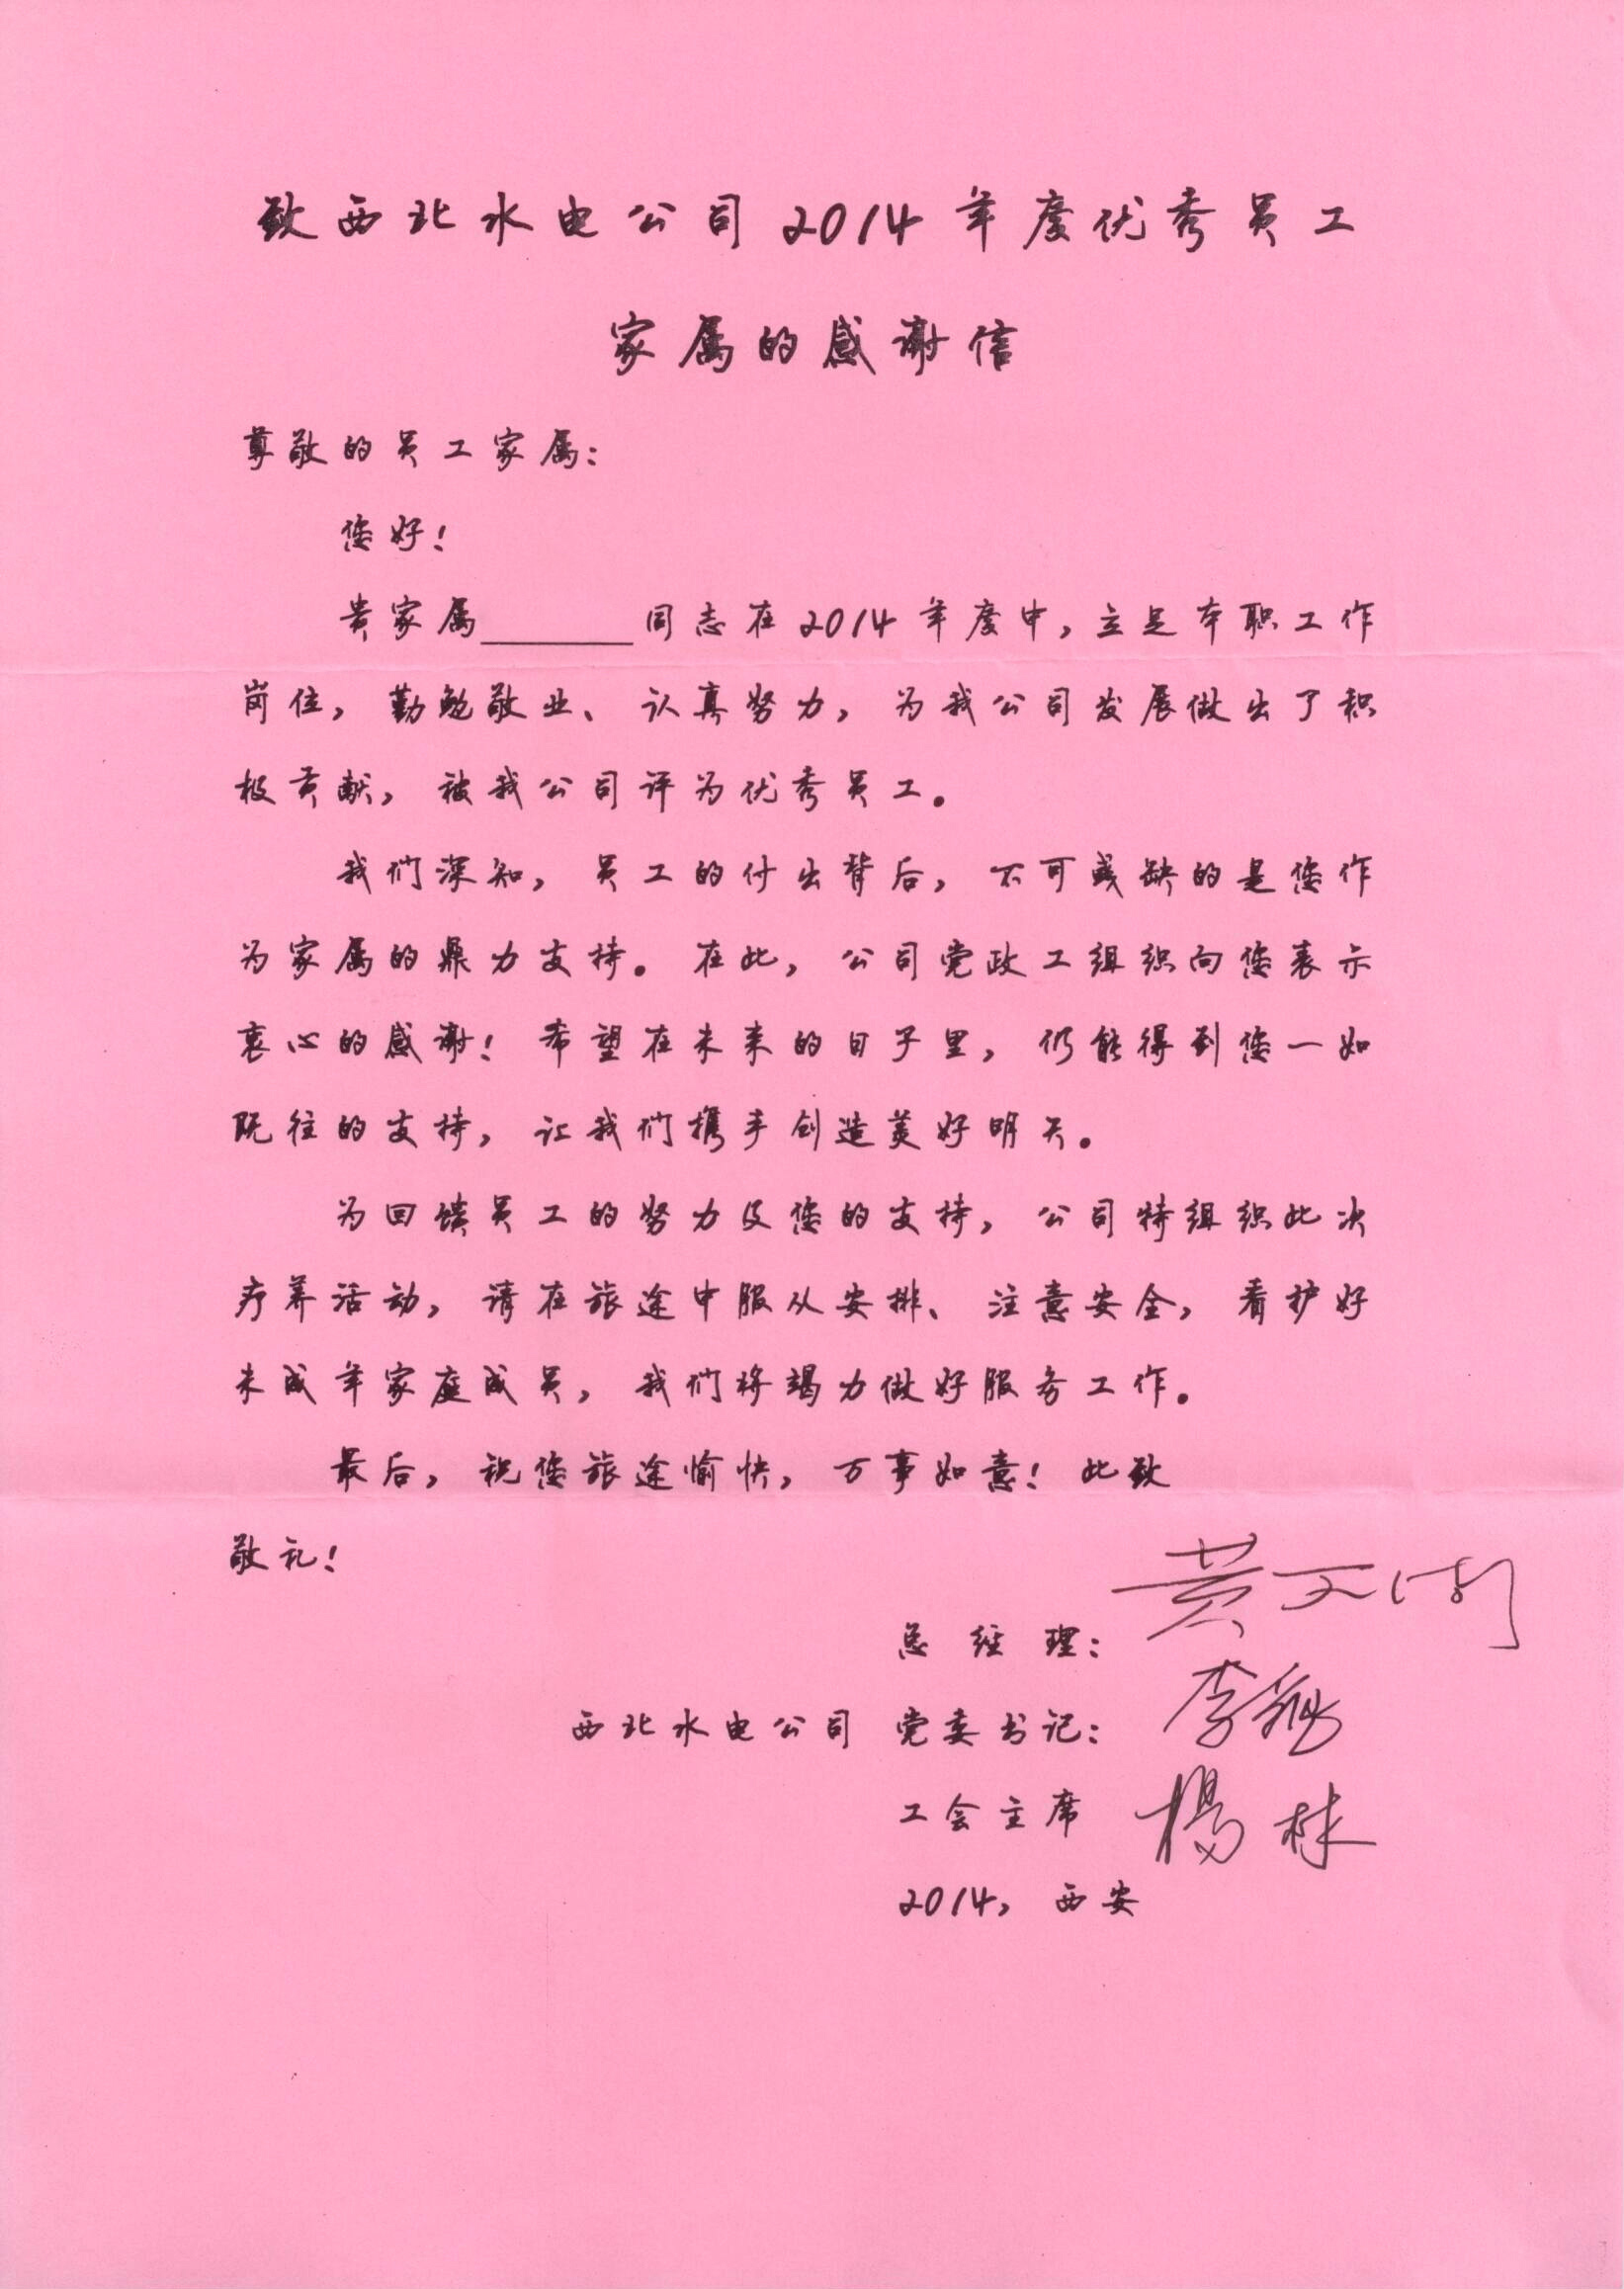 致西北水电公司2014年度优秀员工
家属的感谢信
尊敬的员工家属：
您好！
贵家属________同志在2014年度中，立足本职工作
岗位，勤勉敬业、认真努力，为我公司发展做出了积
极贡献，被我公司评为优秀员工。
我们深知，员工的付出背后，不可或缺的是您作
为家属的鼎力支持。在此，公司党政工组织向您表示
衷心的感谢！希望在未来的日子里，仍能得到您一如
既往的支持，让我们携手创造美好明天。
为回馈员工的努力及您的支持，公司特组织此次
疗养活动，请在旅途中服从安排、注意安全，看护好
未成年家庭成员，我们将竭力做好服务工作。
最后，祝您旅途愉快，万事如意！此致
敬礼！
总经理：黄文
西北水电公司 党委书记：李
工会主席 杨林
2014，西安